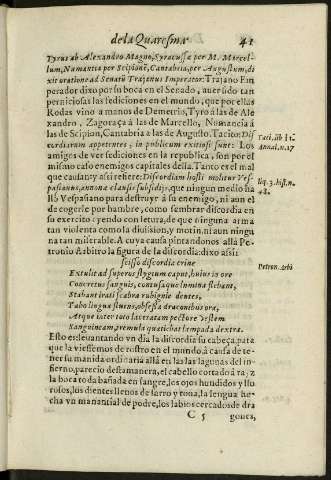 de la Quaresma 41
Tyrus ab Alexandro Magno, Syracussæ per M. Marcel-
lum, Numantia per Scipionẽ, Cantabria, per Augustum, di
xit oratione ad Senatũ Trajanus Imperator: Trajano Em
perador dixo por su boca en el Senado, auer sido tan
perniciosas las sediciones en el mundo, que por ellas
Rodas vino a manos de Demetrio, Tyro á las de Ale
xandro, Zagoraça á las de Marcello, Nomancia á
las de Scipion, Cantabria a las de Augusto. Tacito: Dis
cordiarum appetentes, in publicum exitiosi sunt: Los
amigos de ver sediciones en la republica, son por el
mismo caso enemigos capitales della. Tanto es el mal
que causan y assi refiere: Discordiam hosti molitur Ves-
pasianus, annonæ clausis subsidijs, que ningun medio ha
lló Vespasiano para destruyr á su enemigo, ni aun el
de cogerle por hambre, como sembrar discordia en
su exercito: yendo con letura, de que ninguna arma
tan violenta como la diuision, y motin, ni aun ningu
na tan miserable. A cuya causa pintandonos allá Pe-
tronio Arbitro la figura de la discordia: dixo assi:
scisso discordia crine
Extulit ad superos stygium caput, huius in ore
Concretus sanguis, contusaque lumina flebant,
Stabant irati scabra rubigine dentes,
Tabo lingua fluens, obsessa draconibus ora,
Atque inter toto laceratam pectore vestem
Sanguineam, tremula quatiebat lampada dextra.
Esto es: leuantando vn dia la discordia su cabeça, para
que la viessemos de rostro en el mundo, á causa de te-
ner su manida ordinaria allá en las las lagunas del in-
fierno, parecio desta manera, el cabello cortado á raiz,
la boca toda bañada en sangre, los ojos hundidos y llo
rosos, los dientes llenos de sarro y toua, la lengua he-
cha vn manantial de podre, los labios cercados de dra
C 5 gones,
Taci. lib 11.
Annal. n. 17
lib. 3. hist. n.
48.
Petron. Arbi